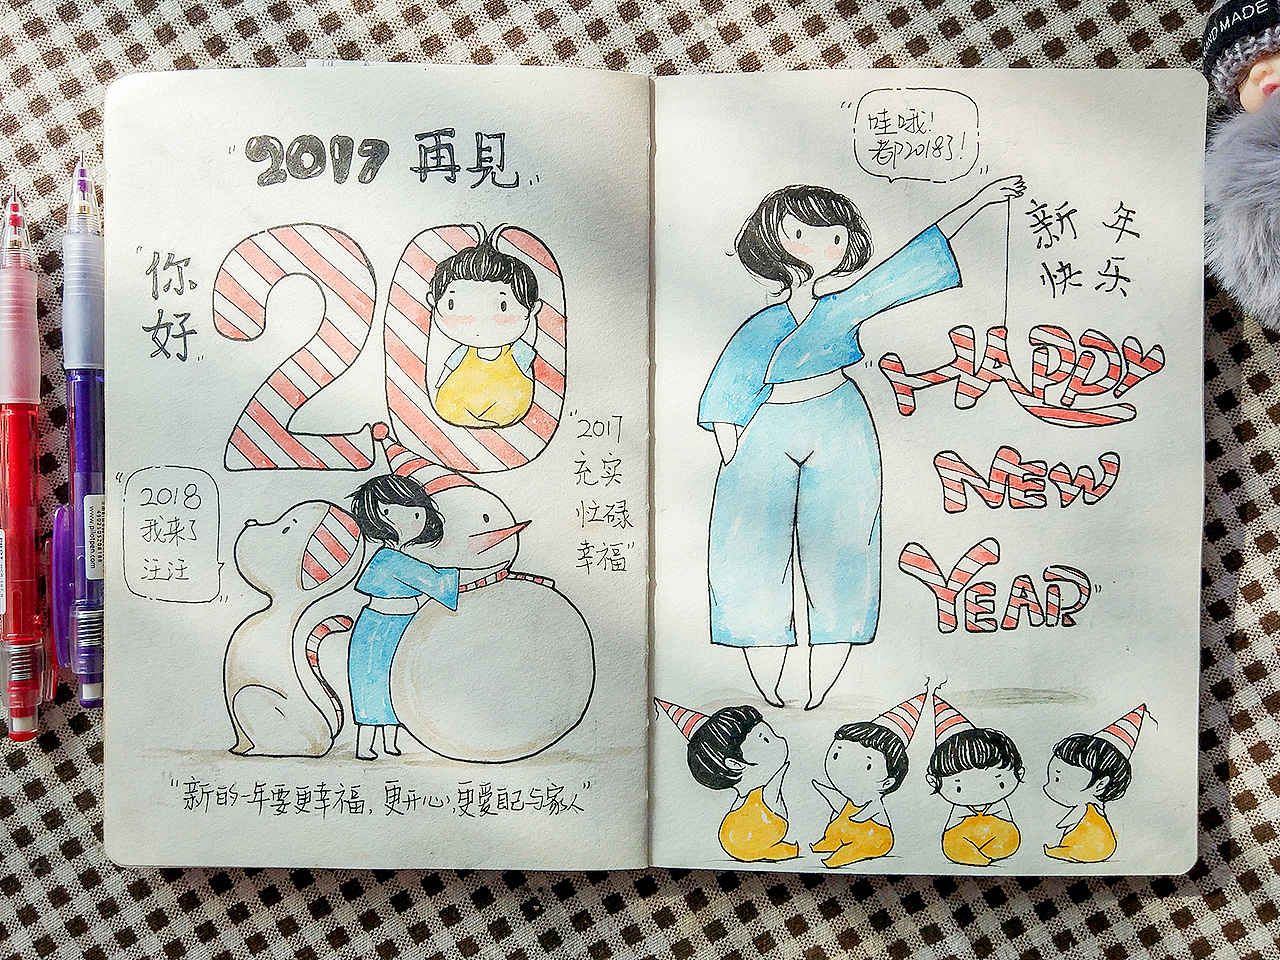 "2017 再见"
"你
好"
20
"2017
充实
忙碌
幸福"
"2018
我来了
汪汪"
"新的一年要更幸福，更开心，更爱自己与家人"
"哇哦！
都2018了！"
新年
快乐
"HAPPY
NEW
YEAR"
HAND MADE
www.pilotpen.com